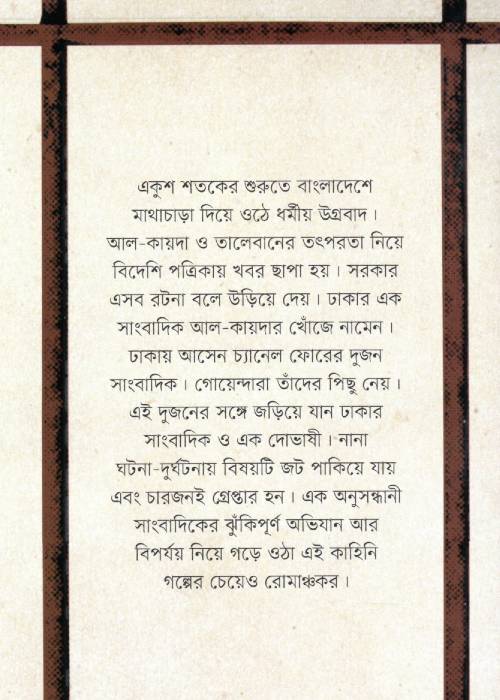 একুশ শতকের শুরুতে বাংলাদেশে
মাথাচাড়া দিয়ে ওঠে ধর্মীয় উগ্রবাদ।
আল-কায়দা ও তালেবানের তৎপরতা নিয়ে
বিদেশি পত্রিকায় খবর ছাপা হয়। সরকার
এসব রটনা বলে উড়িয়ে দেয়। ঢাকার এক
সাংবাদিক আল-কায়দার খোঁজে নামেন।
ঢাকায় আসেন চ্যানেল ফোরের দুজন
সাংবাদিক। গোয়েন্দারা তাঁদের পিছু নেয়।
এই দুজনের সঙ্গে জড়িয়ে যান ঢাকার
সাংবাদিক ও এক দোভাষী। নানা
ঘটনা-দুর্ঘটনায় বিষয়টি জট পাকিয়ে যায়
এবং চারজনই গ্রেপ্তার হন। এক অনুসন্ধানী
সাংবাদিকের ঝুঁকিপূর্ণ অভিযান আর
বিপর্যয় নিয়ে গড়ে ওঠা এই কাহিনি
গল্পের চেয়েও রোমাঞ্চকর।